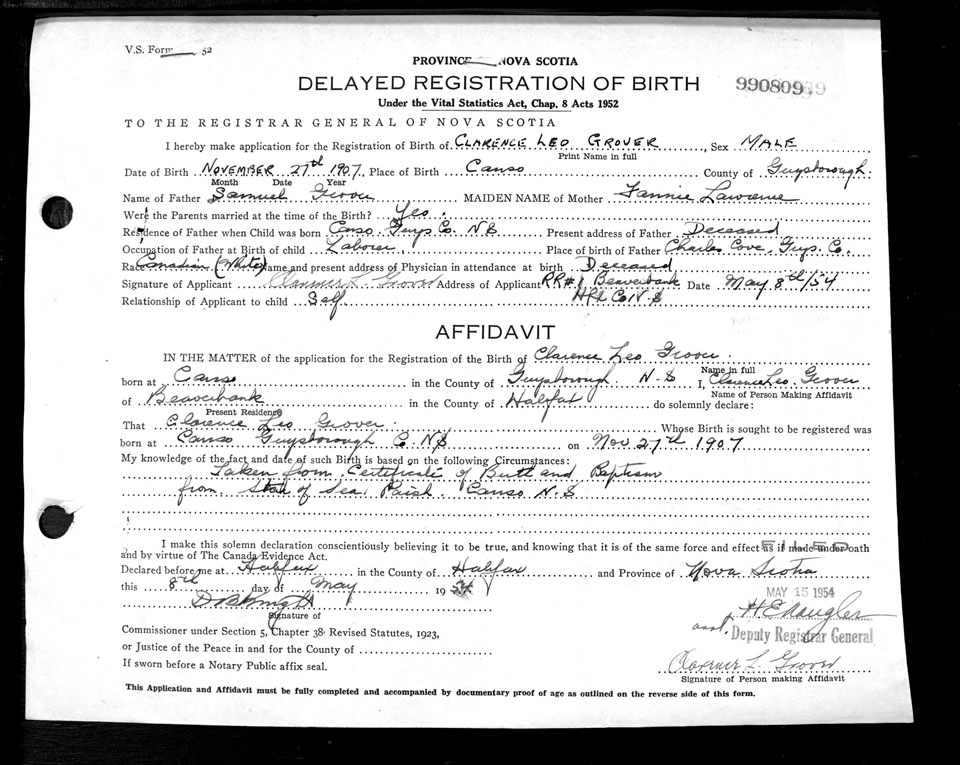 V.S. Form 52
PROVINCE NOVA SCOTIA
DELAYED REGISTRATION OF BIRTH
99080939
Under the Vital Statistics Act, Chap. 8 Acts 1952
TO THE REGISTRAR GENERAL OF NOVA SCOTIA
I hereby make application for the Registration of Birth of CLARENCE LEO GROVER, Sex MALE
Print Name in full
Date of Birth NOVEMBER 27th 1907, Place of Birth Canso County of Guysborough.
Month Date Year
Name of Father Samuel Grover MAIDEN NAME of Mother Fannie Lawrence
Were the Parents married at the time of the Birth? Yes.
Residence of Father when Child was born Canso Guys Co. N S Present address of Father Deceased
Occupation of Father at Birth of child Laborer Place of birth of Father Charles Cove, Guys. Co.
Race Canadian (White) Name and present address of Physician in attendance at birth Deceased
Signature of Applicant L. Grover Address of Applicant RR#1 Beaverbank Date May 8th/54
Relationship of Applicant to child Self Hfx Co N S
AFFIDAVIT
IN THE MATTER of the application for the Registration of the Birth of Clarence Leo Grover.
Name in full
born at Canso in the County of Guysborough N. S I, Clarence Leo Grover
Name of Person Making Affidavit
of Beaverbank in the County of Halifax do solemnly declare:
Present Residence
That Clarence Leo Grover. Whose Birth is sought to be registered was
born at Canso Guysborough C. NS on Nov 27th 1907
My knowledge of the fact and date of such Birth is based on the following Circumstances:
Taken from Certificate of Birth and Baptism
from Star of Sea Parish Canso N. S
I make this solemn declaration conscientiously believing it to be true, and knowing that it is of the same force and effect as if made under oath
and by virtue of The Canada Evidence Act.
Declared before me at Halifax in the County of Halifax and Province of Nova Scotia
this 8th day of May 1954
MAY 15 1954
Signature of
asst. Deputy Registrar General
Commissioner under Section 5, Chapter 38 Revised Statutes, 1923,
or Justice of the Peace in and for the County of
L. Grover
If sworn before a Notary Public affix seal.
Signature of Person making Affidavit
This Application and Affidavit must be fully completed and accompanied by documentary proof of age as outlined on the reverse side of this form.